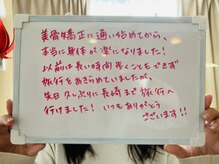 美容矯正に通い始めてから、
本当に身体が楽になりました！
以前は長い時間歩くこともできず
旅行をあきらめていましたが、
先日久しぶりに長崎まで旅行へ
行けました！いつもありがとう
ございます!!